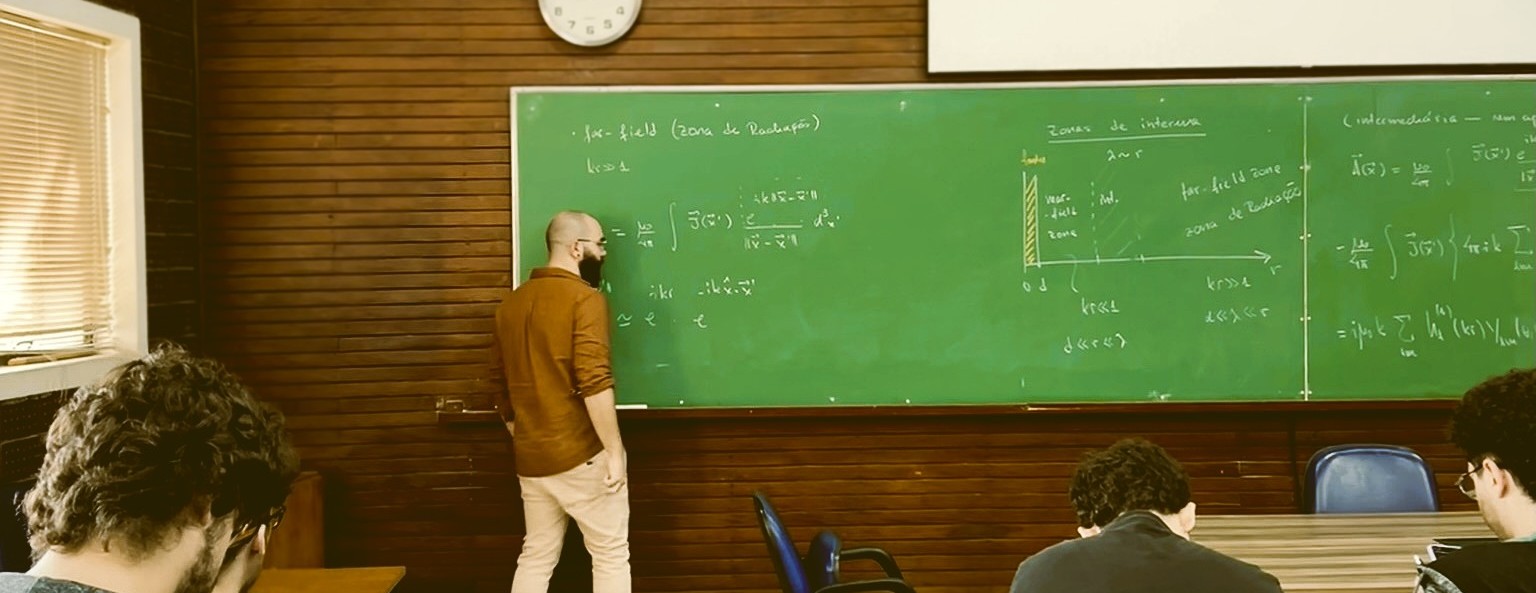 8 7 6 5 4
· far-field (zona de Radiação)
kr >> 1
= μ₀/4π ∫ J⃗(x⃗') e^{ik||x⃗-x⃗'||} / ||x⃗-x⃗'|| d³x'
≃ e^{ikr} · e^{-ik x̂·x⃗'}
Zonas de interesse
λ ~ r
fonte
near-field zone
Ind.
far-field zone
zona de Radiação
0 d r
kr << 1
kr >> 1
d << r << λ
d << λ << r
(intermediária —
A⃗(x⃗) = μ₀/4π ∫ J⃗(x⃗') e
= μ₀/4π ∫ J⃗(x⃗') { 4πik Σ
= iμ₀k Σ h